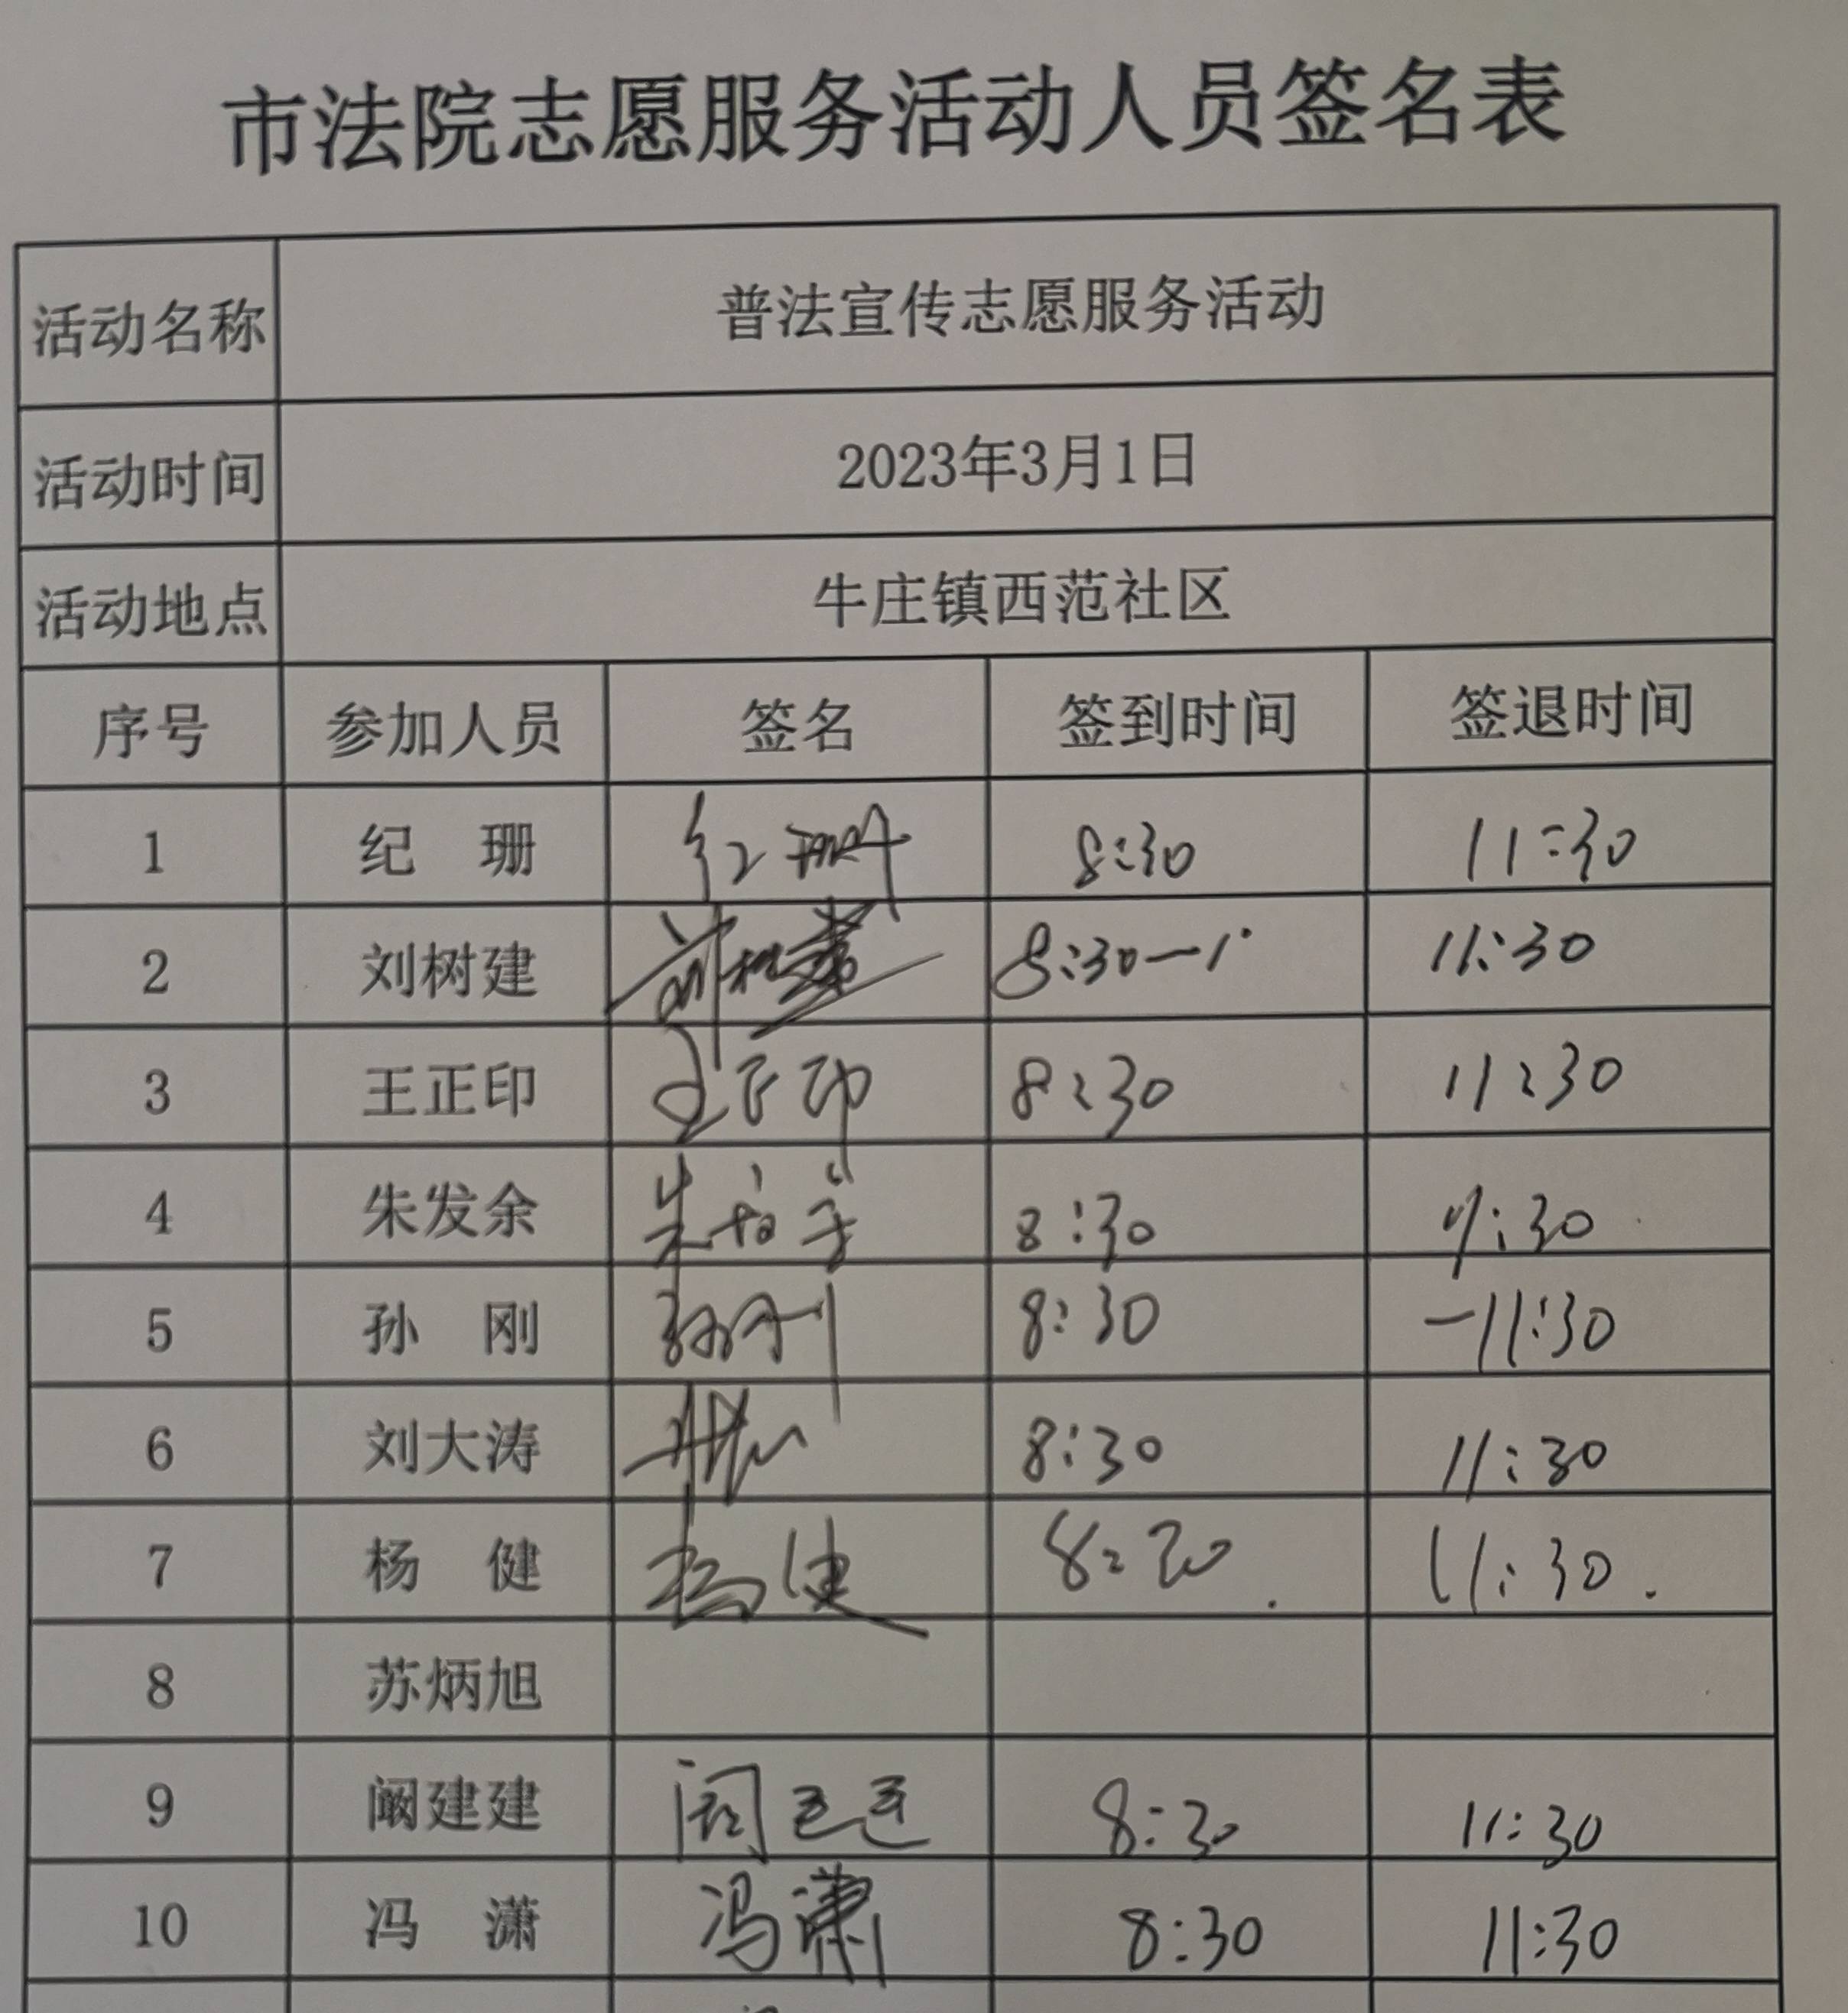 市法院志愿服务活动人员签名表
活动名称 普法宣传志愿服务活动
活动时间 2023年3月1日
活动地点 牛庄镇西范社区
序号 参加人员 签名 签到时间 签退时间
1 纪 珊 纪珊 8:30 11:30
2 刘树建 刘树建 8:30 11:30
3 王正印 王正印 8:30 11:30
4 朱发余 朱发余 8:30 11:30
5 孙 刚 孙刚 8:30 -11:30
6 刘大涛 8:30 11:30
7 杨 健 杨健 8:30 11:30.
8 苏炳旭
9 阚建建 阚建建 8:30 11:30
10 冯 潇 冯潇 8:30 11:30